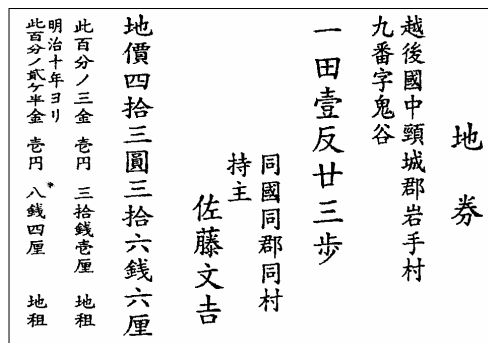 地券
越後國中頸城郡岩手村
九番字鬼谷
一田壹反廿三歩
同國同郡同村
持主
佐藤文吉
地價四拾三圓三拾六銭六厘
此百分ノ三金 壱円 三拾銭壱厘 地租
明治十年ヨリ
此百分ノ貳ケ半金 壱円 八銭四厘 地租
*